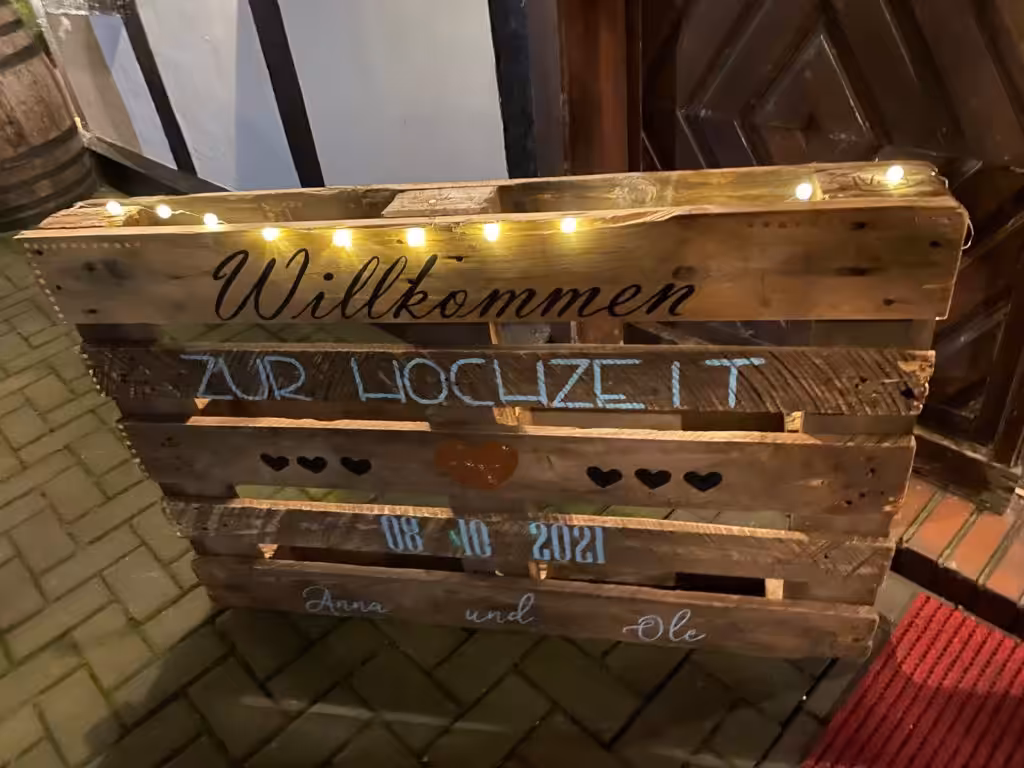 Willkommen
ZUR HOCHZEIT
08 10 2021
Anna und Ole